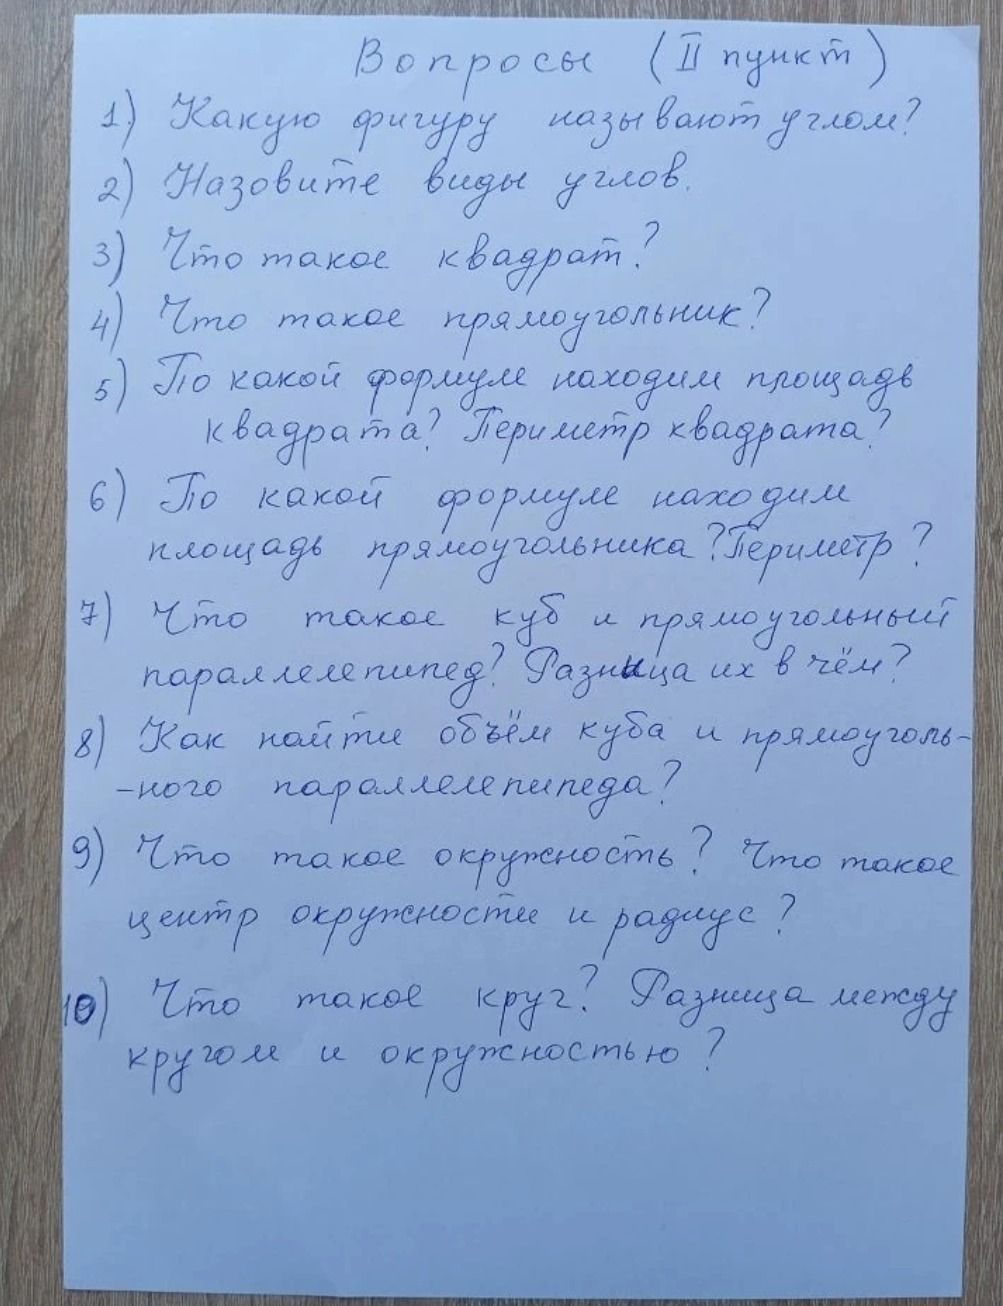 Вопросы (II пункт)
1) Какую фигуру называют углом?
2) Назовите виды углов.
3) Что такое квадрат?
4) Что такое прямоугольник?
5) По какой формуле находим площадь
квадрата? Периметр квадрата?
6) По какой формуле находим
площадь прямоугольника? Периметр?
7) Что такое куб и прямоугольный
параллелепипед? Разница их в чём?
8) Как найти объём куба и прямоуголь-
-ного параллелепипеда?
9) Что такое окружность? Что такое
центр окружности и радиус?
10) Что такое круг? Разница между
кругом и окружностью?